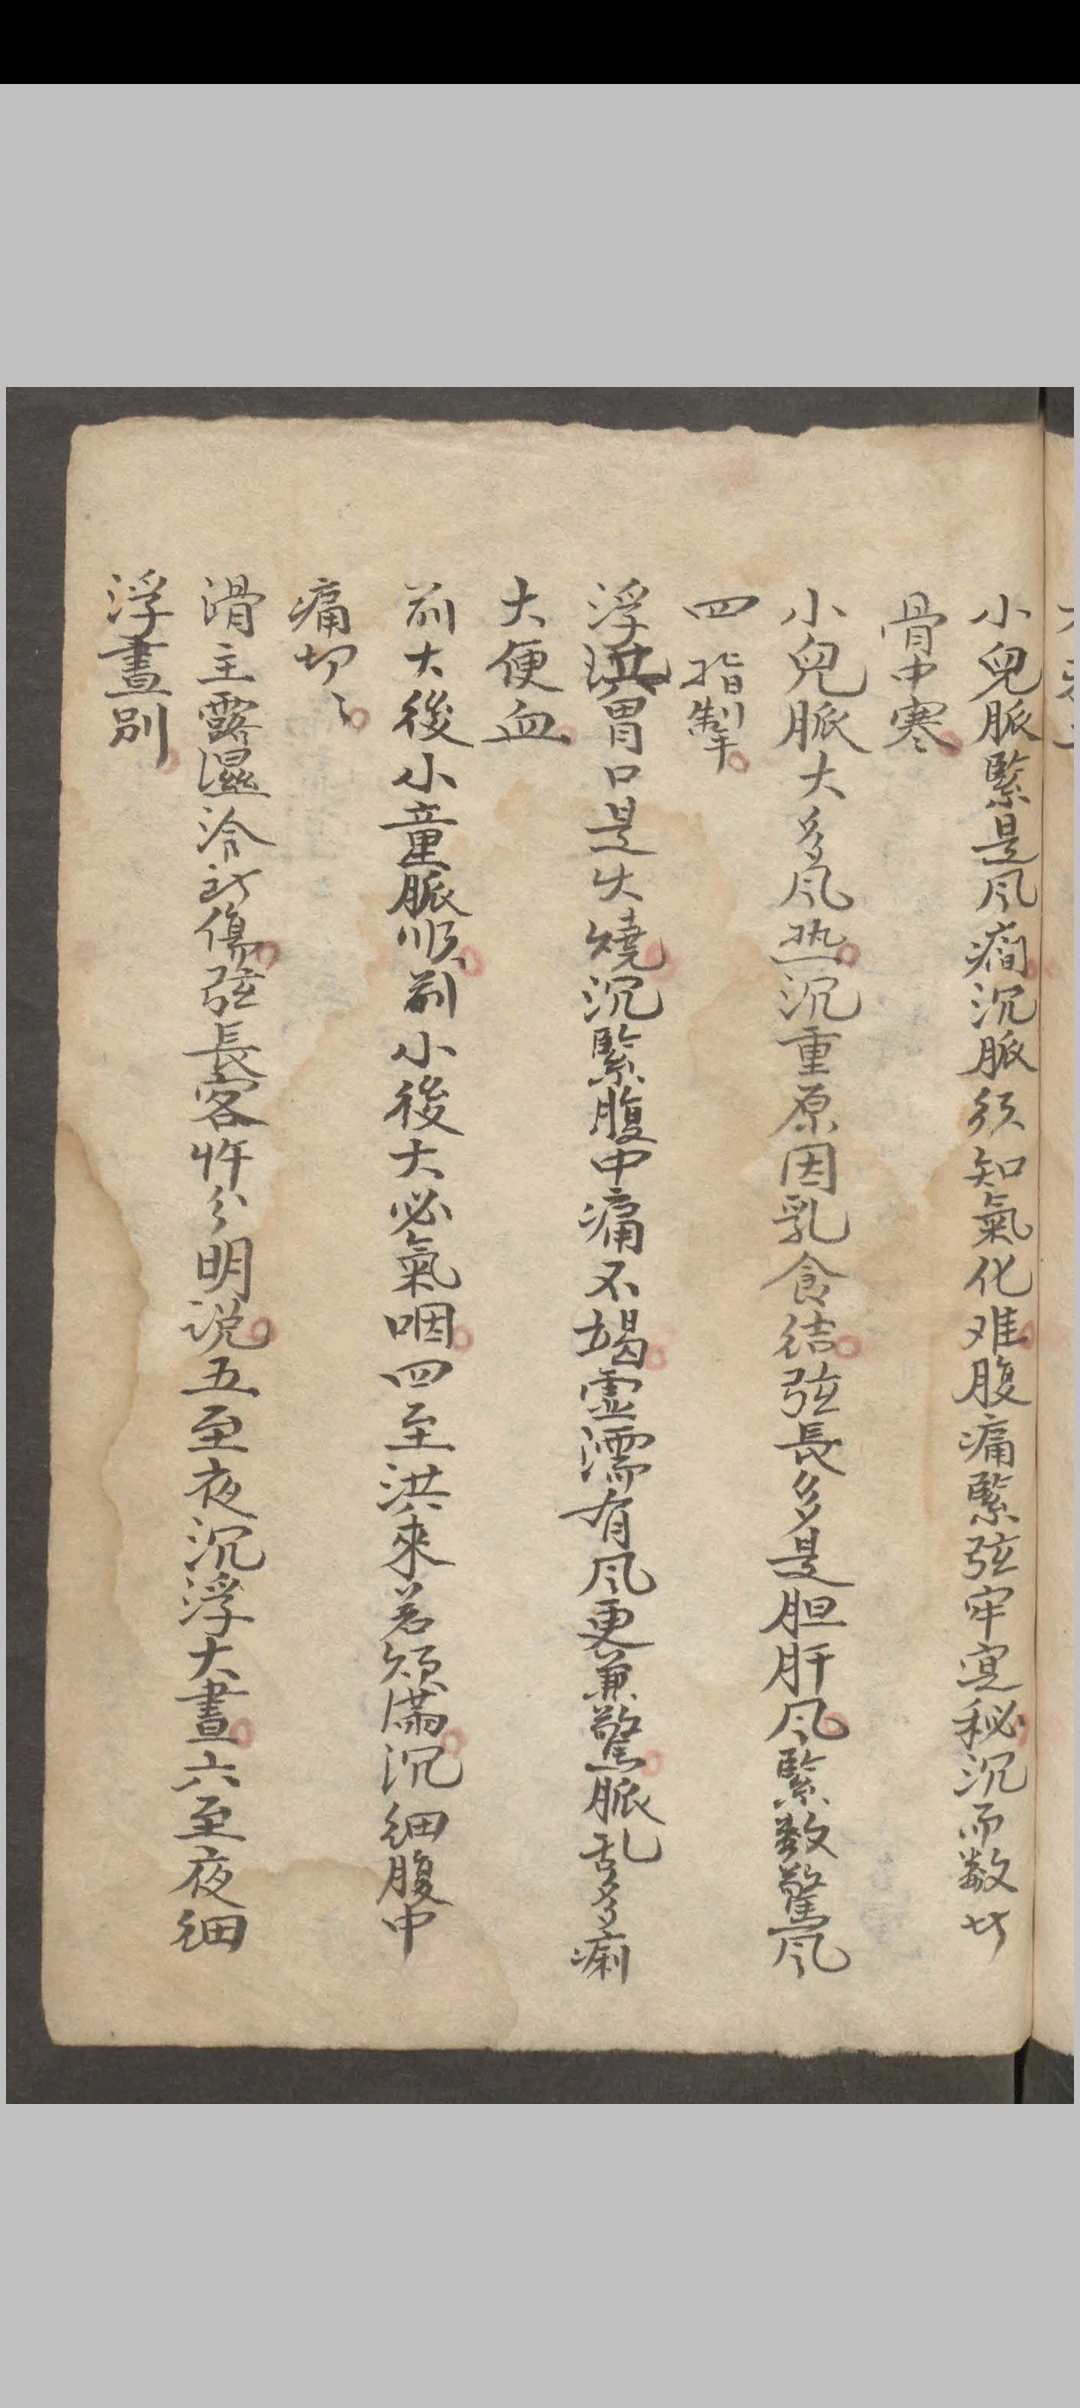 小兒脈緊是风癇沉脈須知氣化难腹痛緊弦牢寔秘沉而数时
骨中寒
小兒脈大多风热沉重原因乳食结弦長多是胆肝风緊数驚风
四指掣
浮洪胃口是火燒沉緊腹中痛不竭虚濡有风更兼驚脈乱多痢
大便血
前大後小童脈順前小後大必氣咽四至洪來若煩滿沉细腹中
痛切〻
滑主露濕冷所傷弦長客忤分明说五至夜沉浮大晝六至夜细
浮晝别